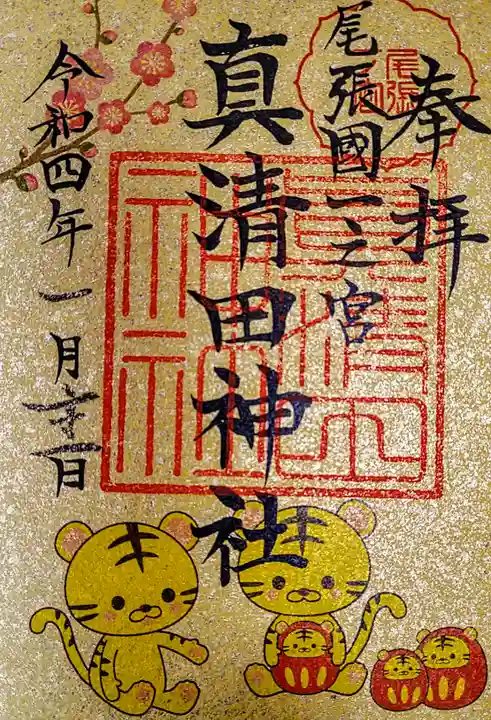 奉拝
尾張
尾張國一之宮
真清田神社
真清田
神社
令和四年一月 日